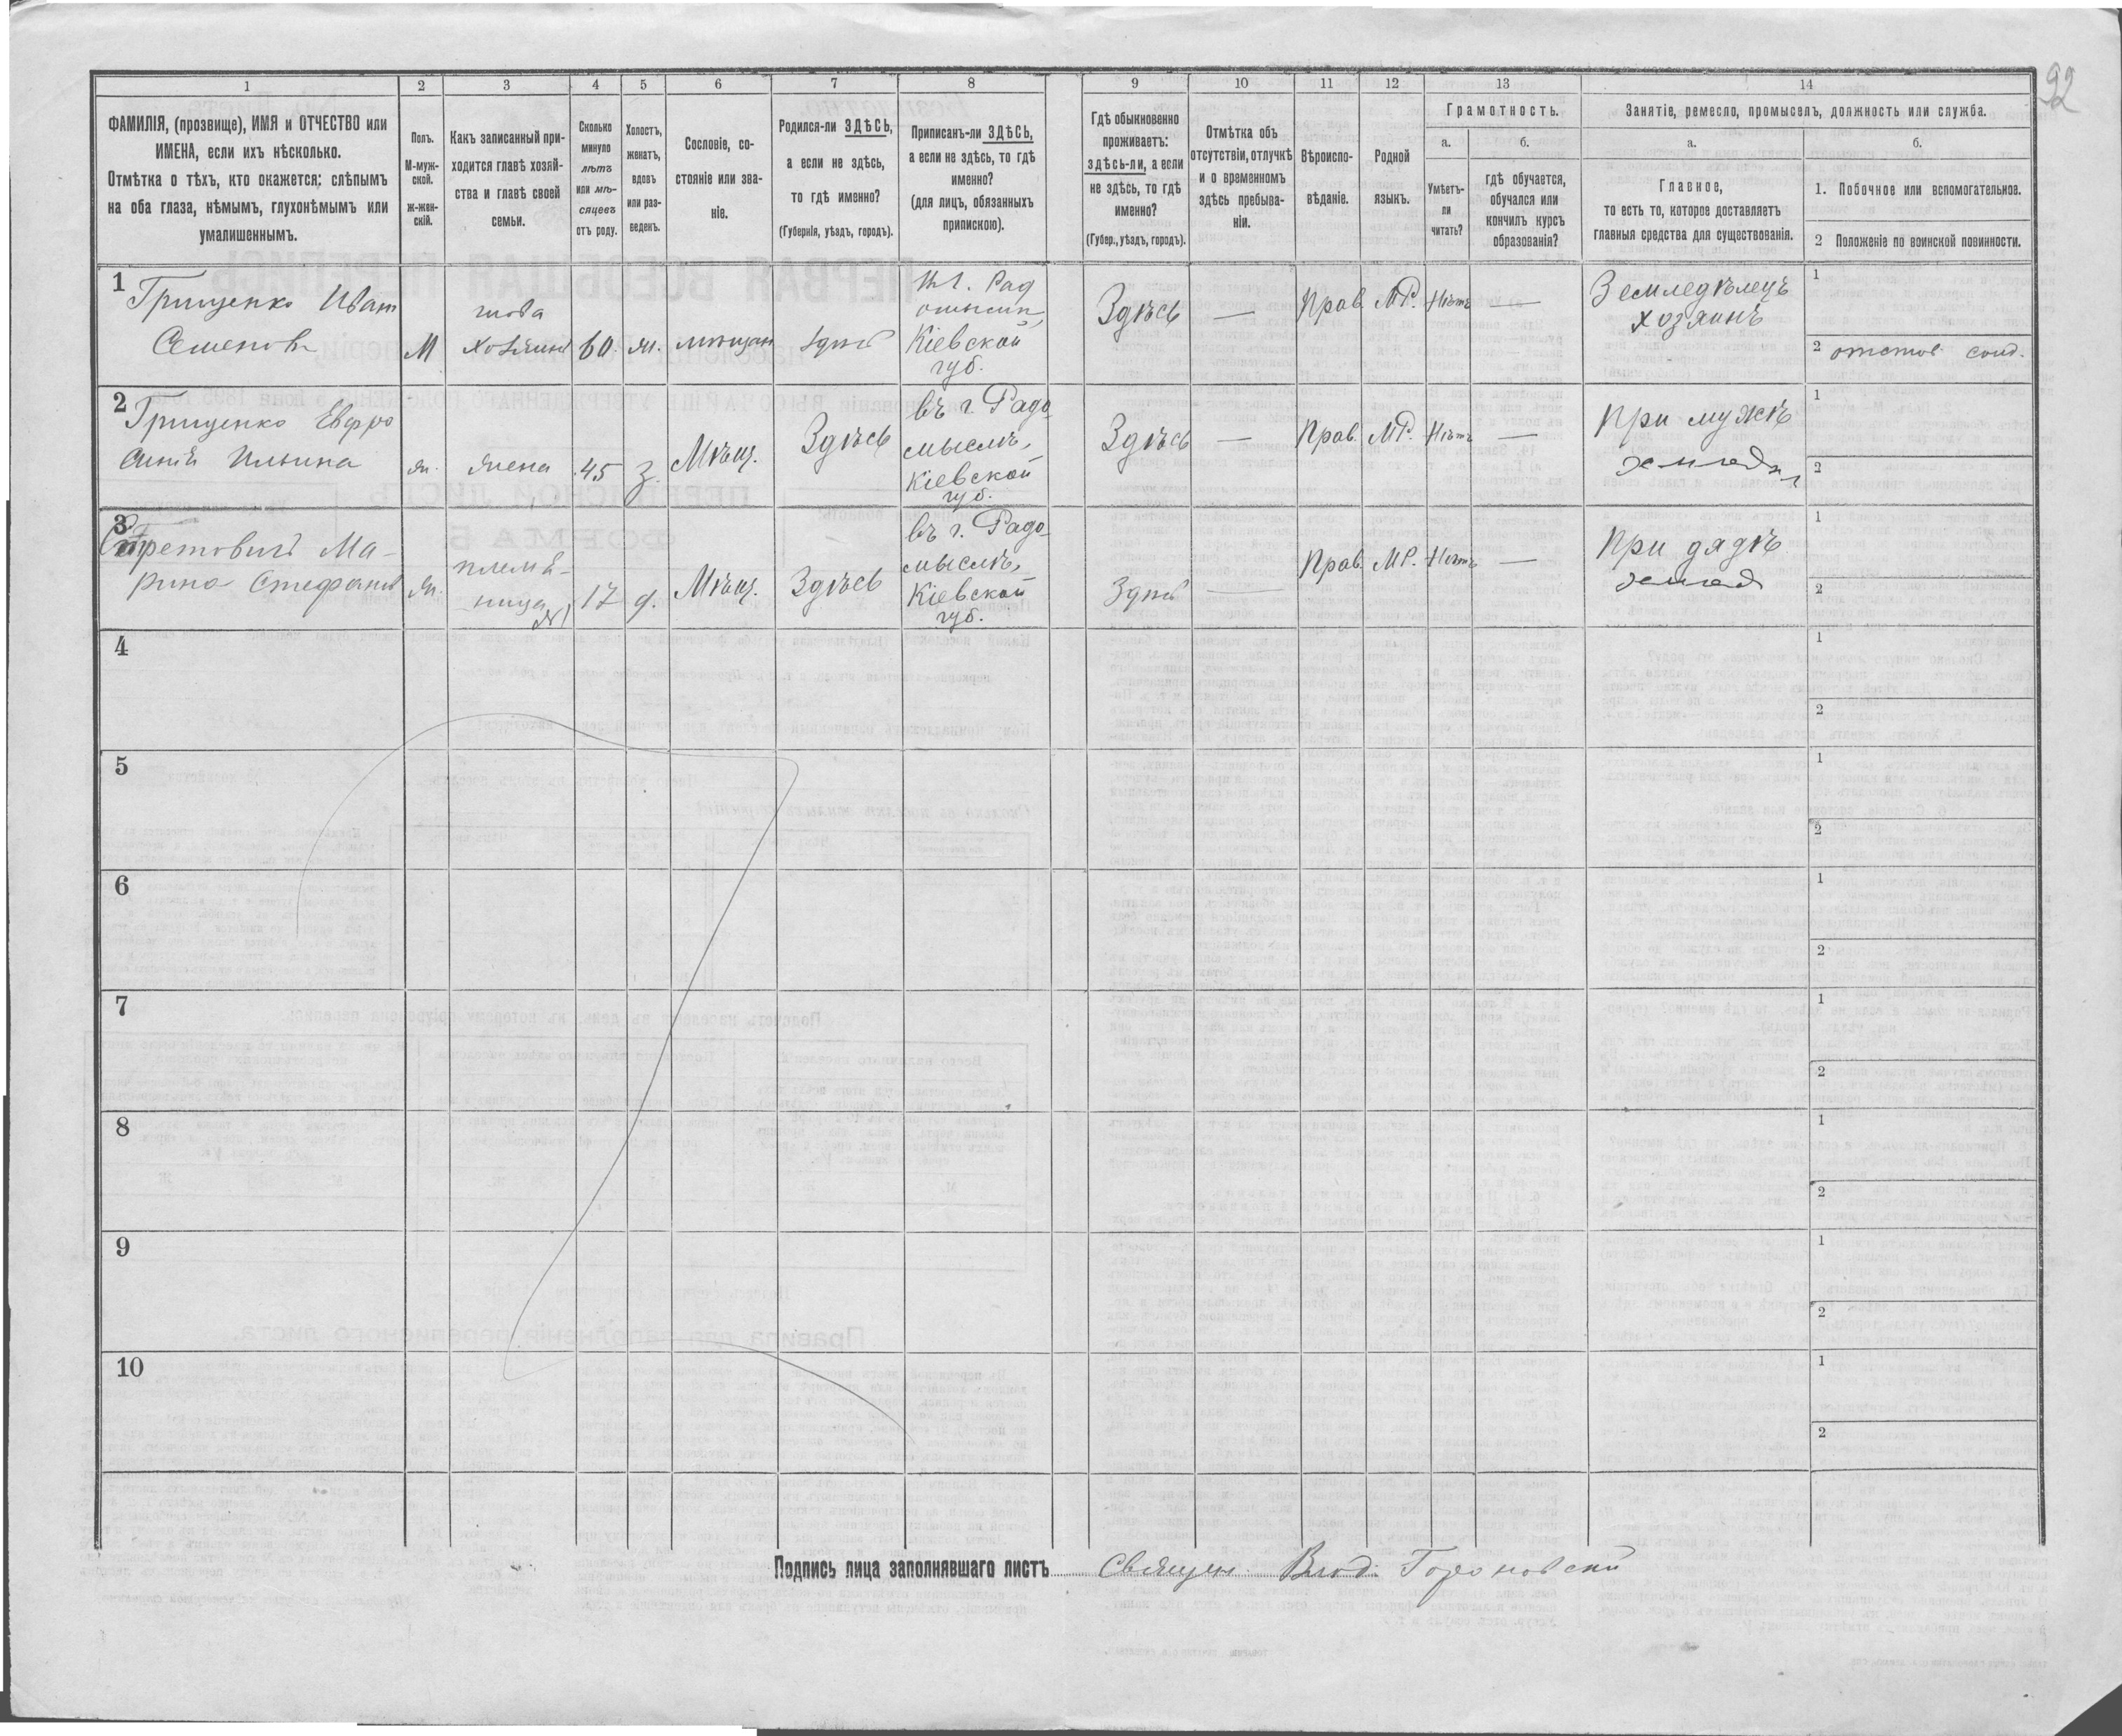 92
1 2 3 4 5 6 7 8 9 10 11 12 13 14
ФАМИЛІЯ, (прозвище), ИМЯ и ОТЧЕСТВО или
ИМЕНА, если ихъ нѣсколько.
Отмѣтка о тѣхъ, кто окажется: слѣпымъ
на оба глаза, нѣмымъ, глухонѣмымъ или
умалишеннымъ.
Полъ.
М-муж-
ской.
Ж-жен-
скій.
Какъ записанный при-
ходится главѣ хозяй-
ства и главѣ своей
семьи.
Сколько
минуло
лѣтъ
или мѣ-
сяцевъ
отъ роду.
Холостъ,
женатъ,
вдовъ
или раз-
веденъ.
Сословіе, со-
стояніе или зва-
ніе.
Родился-ли ЗДѢСЬ,
а если не здѣсь,
то гдѣ именно?
(Губернія, уѣздъ, городъ).
Приписанъ-ли ЗДѢСЬ,
а если не здѣсь, то гдѣ
именно?
(для лицъ, обязанныхъ
припискою).
Гдѣ обыкновенно
проживаетъ:
здѣсь-ли, а если
не здѣсь, то гдѣ
именно?
(Губер., уѣздъ, городъ).
Отмѣтка объ
отсутствіи, отлучкѣ
и о временномъ
здѣсь пребыва-
ніи.
Вѣроиспо-
вѣданіе.
Родной
языкъ.
Грамотность.
а.
Умѣетъ-
ли
читать?
б.
гдѣ обучается,
обучался или
кончилъ курсъ
образованія?
Занятіе, ремесло, промыселъ, должность или служба.
а.
Главное,
то есть то, которое доставляетъ
главныя средства для существованія.
б.
1. Побочное или вспомогательное.
2 Положеніе по воинской повинности.
1
Грищенко Иван
Семенов
М
глава
хозяинъ
60
ж.
мѣщан
здѣсь
Кіевской
губ.
Здѣсь
—
Прав.
МР.
Нѣтъ
—
Земледѣлецъ
хозяинъ
1
2
2
Грищенко Евфро
синія Ильина
ж.
жена
45
з.
Мѣщ.
Здѣсь
въ г. Радо
мыслѣ,
Кіевской
губ.
Здѣсь
—
Прав.
МР.
Нѣтъ
—
При мужѣ
1
2
3
Ма-
рина Стефанов
ж.
племя-
ница
17
д.
Мѣщ.
Здѣсь
въ г. Радо
мыслѣ,
Кіевской
губ.
Здѣсь
—
Прав.
МР.
Нѣтъ
—
При дядѣ
землед
1
2
4
1
2
5
1
2
6
1
2
7
1
2
8
1
2
9
1
2
10
1
2
Подпись лица заполнявшаго листъ Священ. Влод.